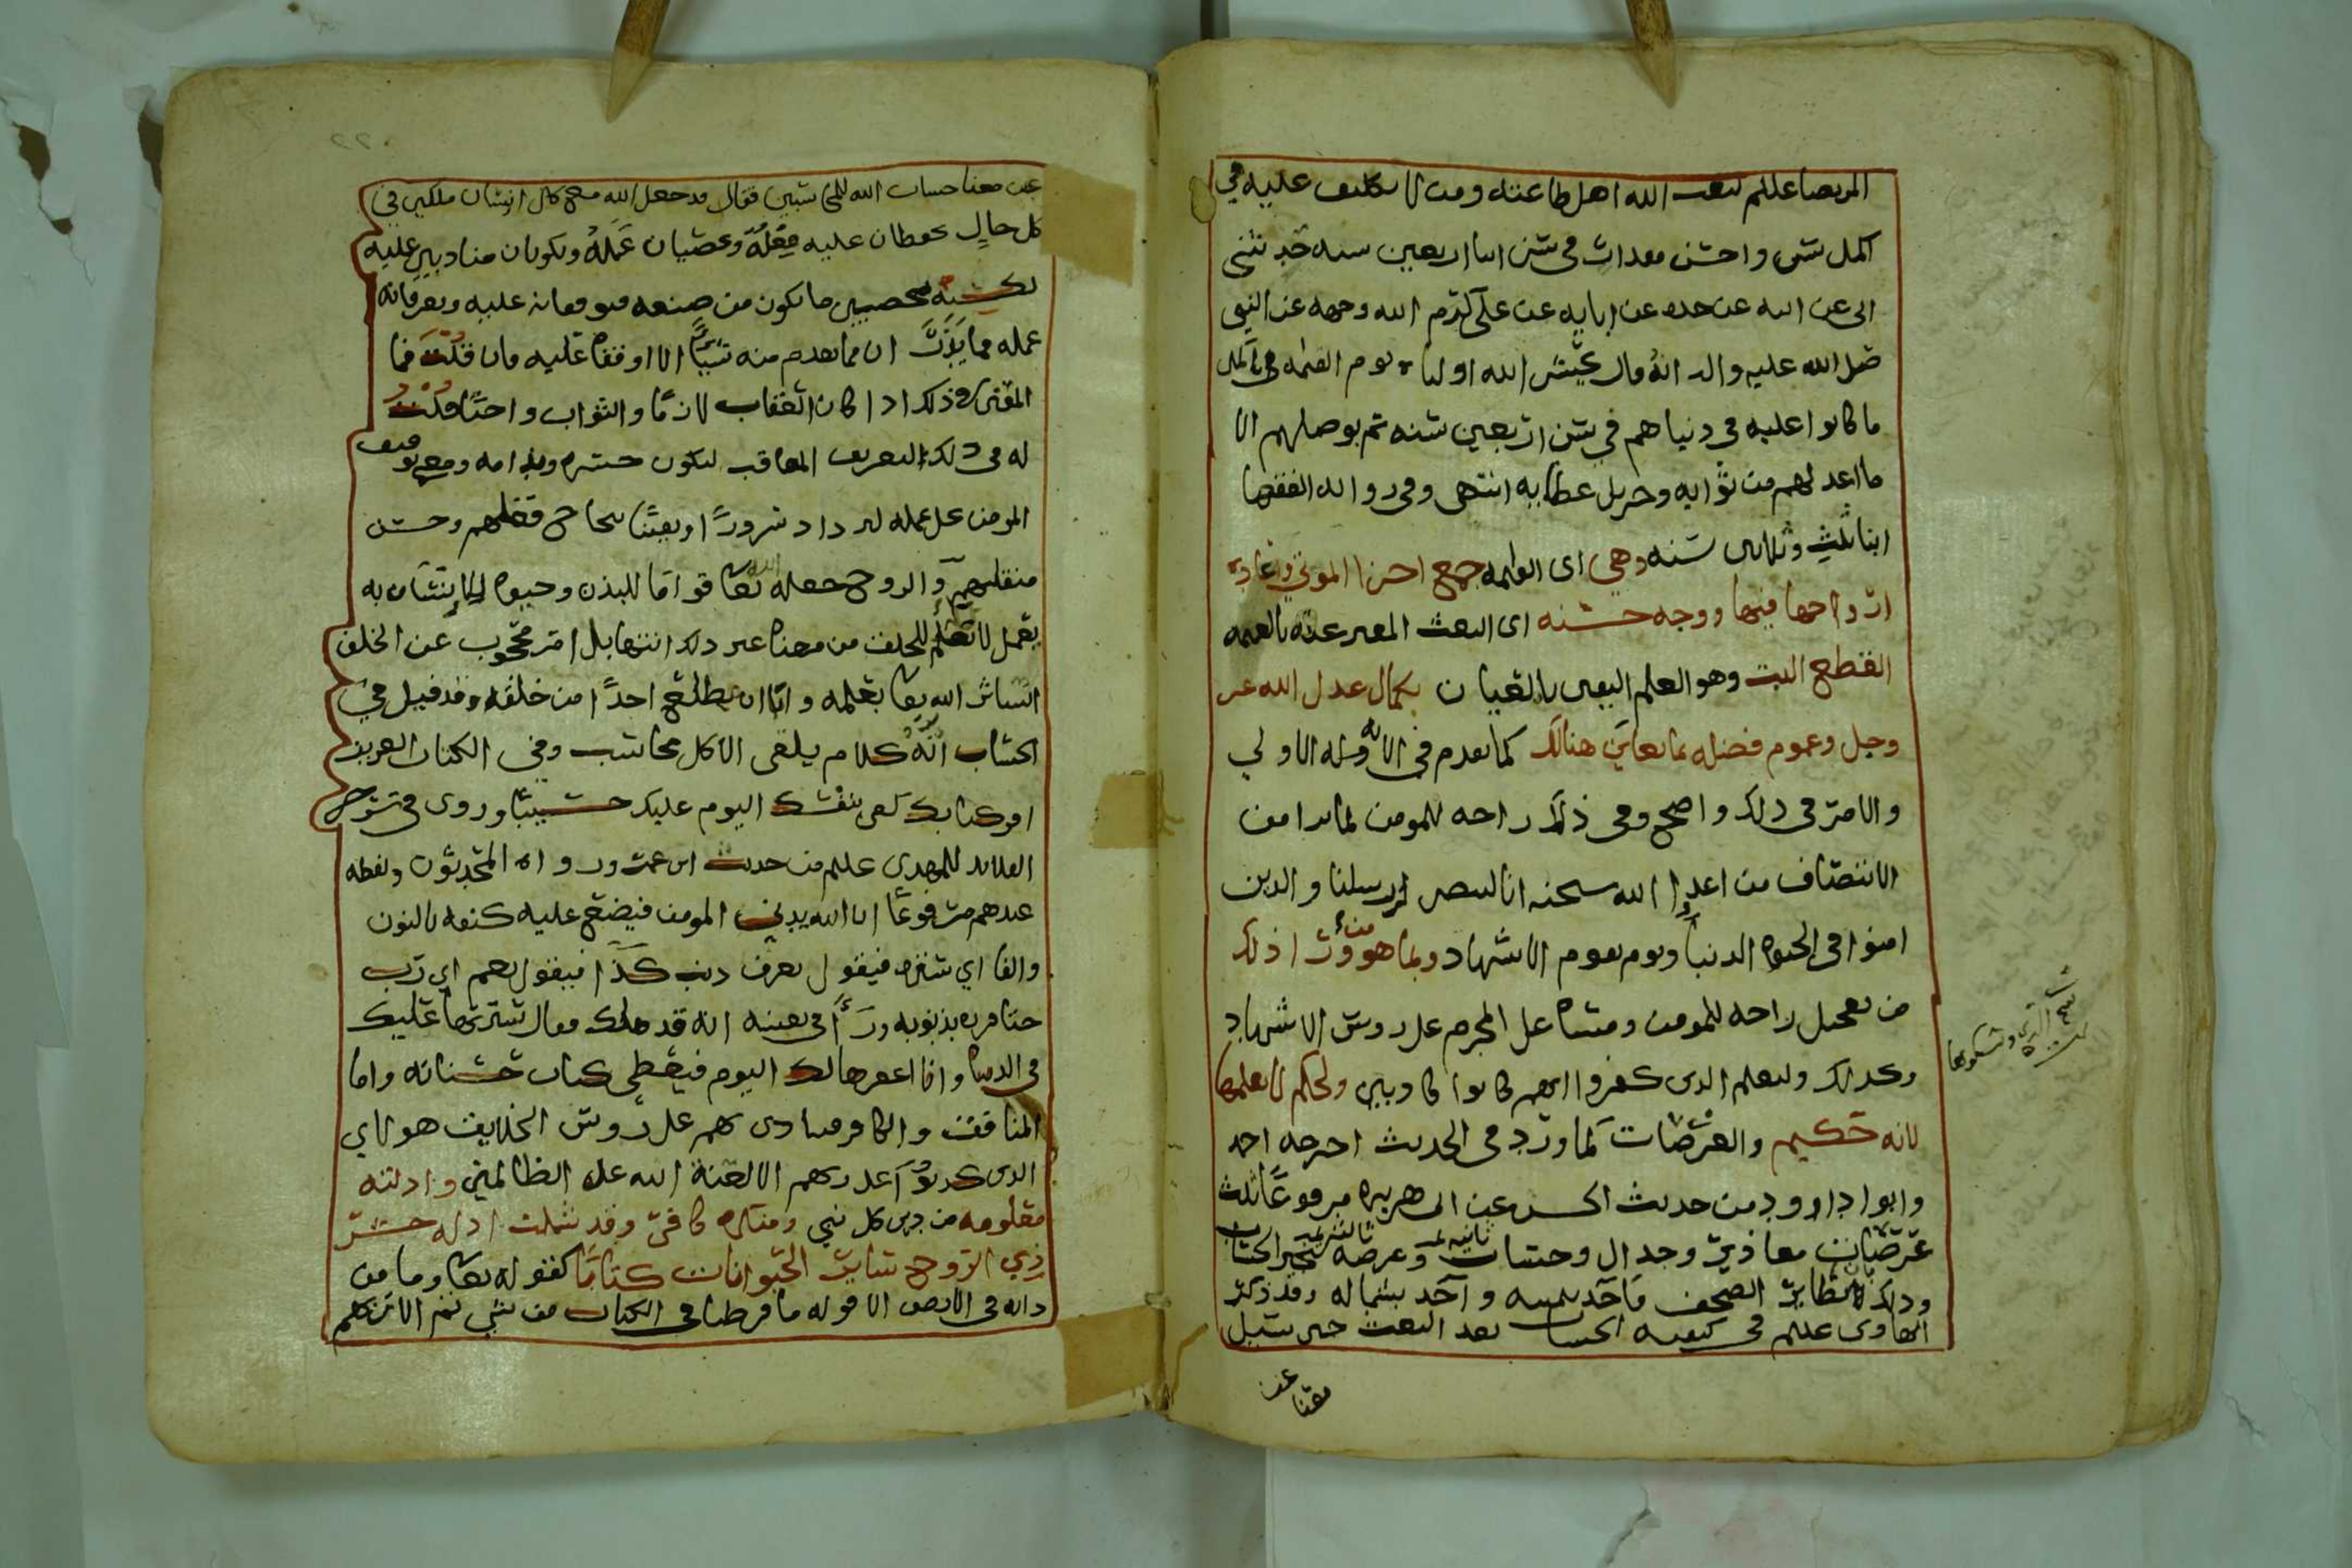 المرتضا عليلم يبعث الله اهل طاعته ومن لا تكليف عليه في
اكمل شي واحسن مقدار في سن ابنا اربعين سنه حدثني
ابي عن ابيه عن جده عن ابايه عن علي كرم الله وجهه عن النبي
صلى الله عليه واله انه قال يحشر الله اوليا يوم القيمه في اكمل
ما كانوا عليه في دنياهم في سن اربعين سنه ثم يوصلهم الا
ما اعد لهم من ثوابه وجزيل عطايه انتهى وفي روايه الفقها
ابنا ثلث وثلاثين سنه وهي اى القيمه جمع اجزا الموتى واعادة
ارواحها فيها ووجه حسنه اى البعث المعبر عنه بالقيمه
القطع البت وهو العلم اليقين بالعيان بكمال عدل الله عز
وجل وعموم فضله بما يعاين هنالك كما تقدم في الاولي
والامر في ذلك واضح وفي ذلك راحه للمومن لما يرا من
الانتصاف من اعدا الله سبحنه انا لننصر رسلنا والذين
امنوا في الحيوه الدنيا ويوم يقوم الاشهاد وبما هو ورا ذلك
من تعجيل راحه للمومن ومساة على المجرم على روس الاشهاد
وكذلك وليعلم الذين كفروا انهم كانوا كاذبين ولحكم لا نعلمها
لانه حكيم والعرضات كما ورد في الحديث اخرجه احمد
وابوا داوود من حديث الحسن عن ابي هريره مرفوعًا ثلث
عرضات معاذير وجدال وحساب وعرضه
وذلك تطاير الصحف فاخذ بيمينه واخذ بشماله وقد ذكر
الهادى عليلم في كيفيه الحساب بعد البعث حين سيل
عن معنا
عن معنا حساب الله للمحاسبين فقال قد جعل الله مع كل انسان ملكين في
كل حالٍ يحفظان عليه فعله ويحصيان عمله ويكونان منادبين عليه
محصيين ما يكون من صنعه فيوقفانه عليه ويعرفانه
عمله فما ان مما تقدم منه شيئًا الا اوقفاه عليه فان قلت فما
المعنى في ذلك اذا كان العقاب لازمًا والثواب واجبًا قلت
له في ذلك التعريف المعاقب ليكون حسره وندامه ومع توقيف
المومن على عمله ليزداد سرورًا ويقينًا بنجاح فعلهم وحسن
منقلبهم والروح جعله الله تعا قوامًا للبدن وحيوه للانسان به
يعمل لا تعلم للخلق من معناه غير ذلك انتهابل امر محجوب عن الخلق
استاثر الله تعا بعلمه وابا ان يطلع احدًا من خلقه وقد قيل في
الحساب انه كلام يلقى الا كل محاسب وفي الكتاب العزيز
اقرء كتابك كفى بنفسك اليوم عليك حسيبًا وروى في شرح
القلايد للمهدى عليلم من حديث ابن عمر ورواه المحدثون ولفظه
عندهم مرفوعًا ان الله يدني المومن فيضع عليه كنفه بالنون
والفا اي ستره فيقول تعرف ذنب كذا فيقول نعم اي رب
حتا قرره بذنوبه ورءا في نفسه انه قد هلك فقال سترتها عليك
في الدنيا وانا اغفرها لك اليوم فيعطى كتاب حسناته واما
المنافق والكافر فينادى بهم على روس الخلايق هولاي
الذين كذبوا على ربهم الا لعنة الله على الظالمين وادلته
معلومه من دين كل نبي ومنكره كافر وقد شملت ادله حشر
ذي الروح سائر الحيوانات كتابًا كقوله تعا وما من
دابه في الارض الا قوله ما فرطنا في الكتاب من شي ثم الا ربهم